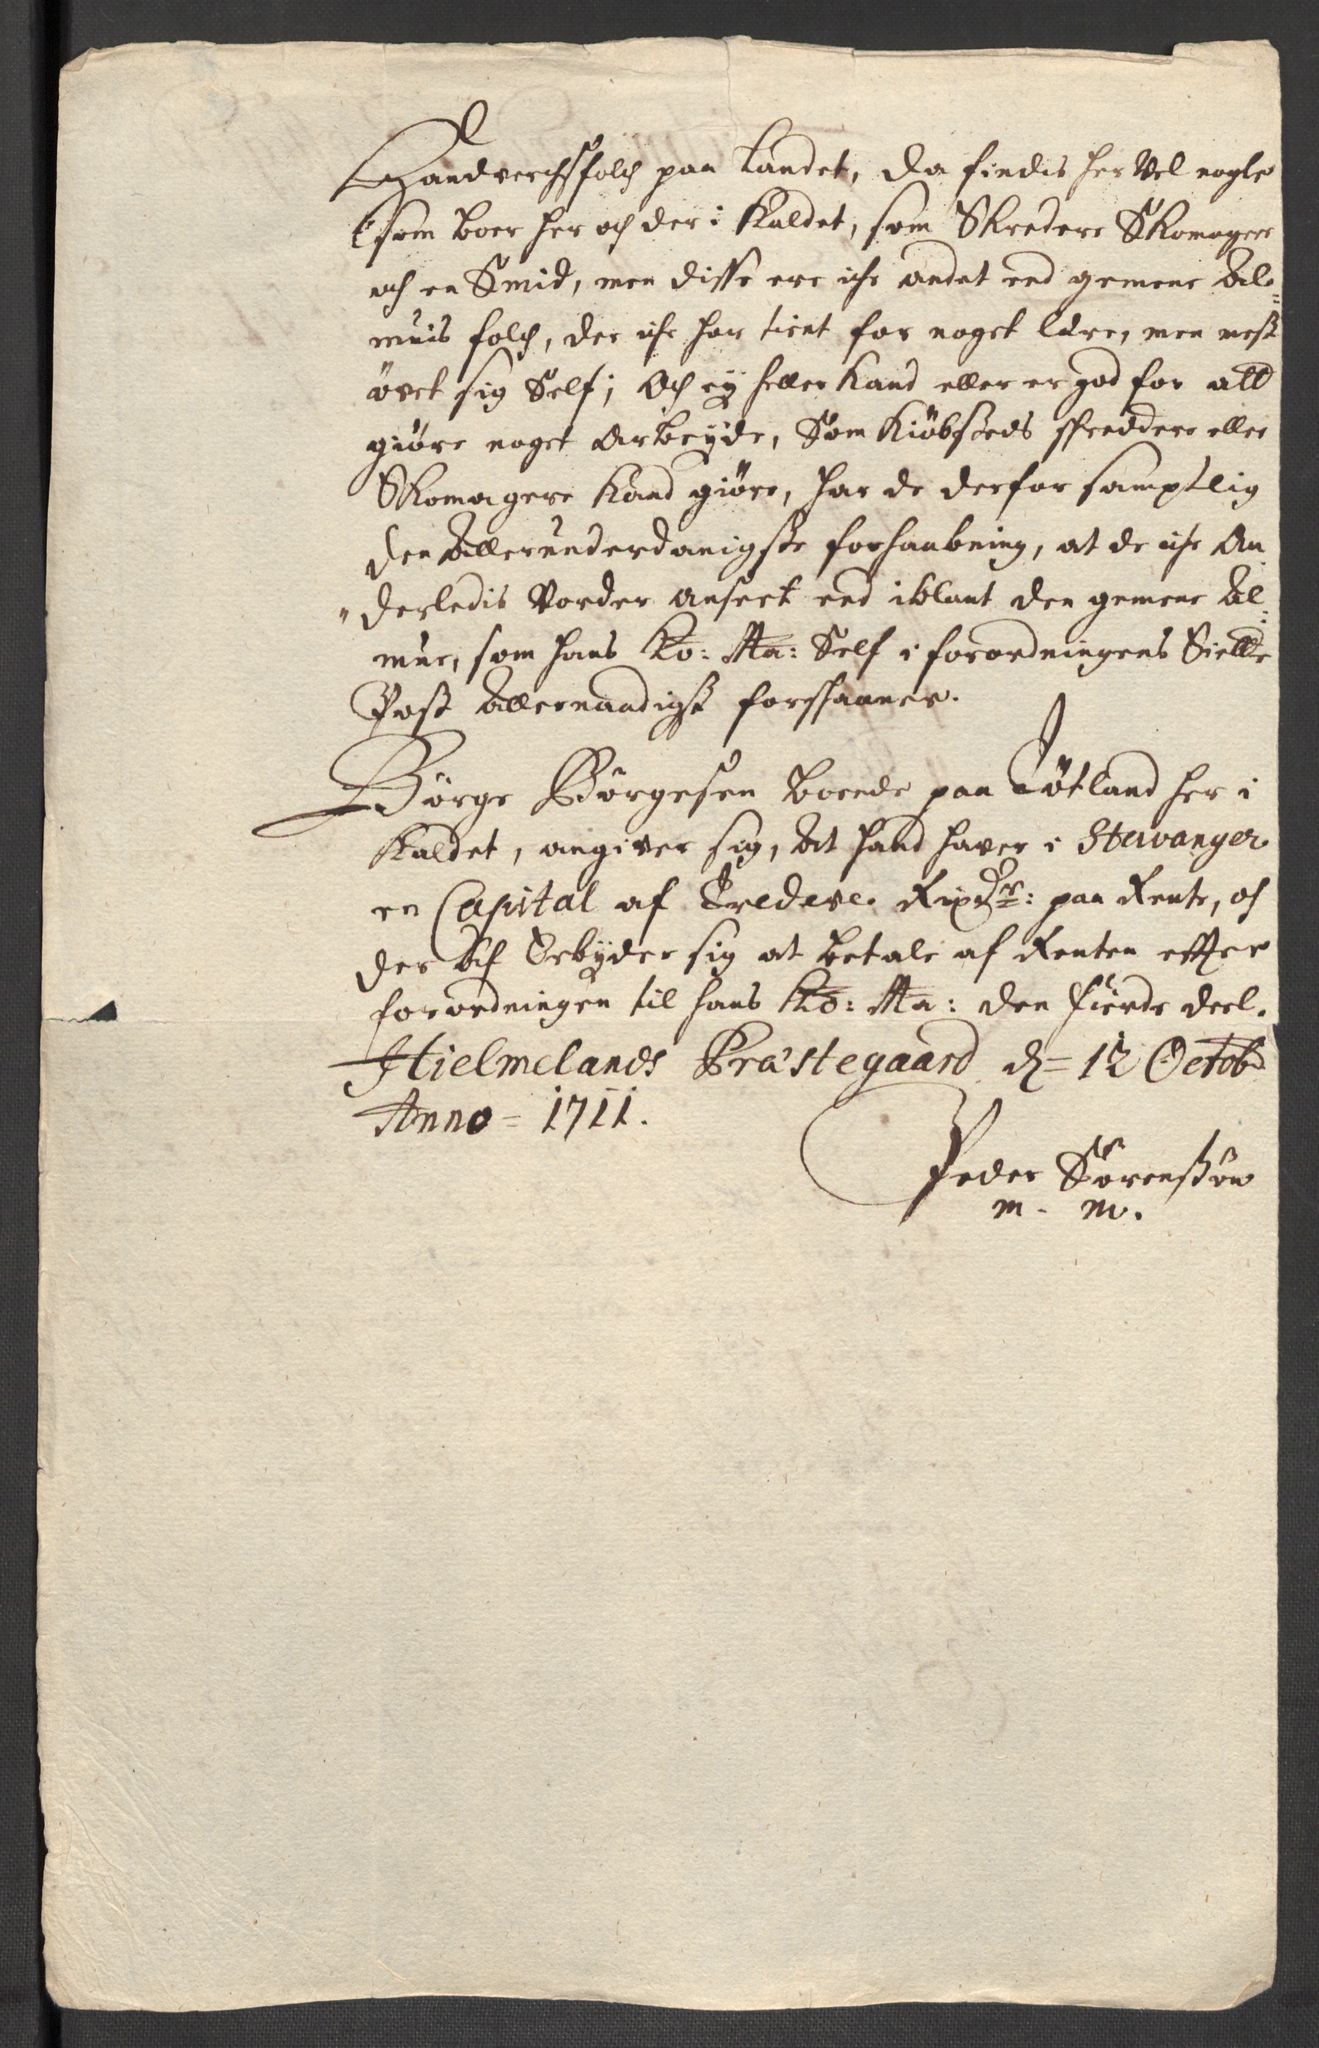 Handverchsfolch paa Landet, da findis her vel nogle
som boer her och der i Kaldet, som Skredere Skomagere
och en Smid, men disse ere iche andet end gemene Al¬
muis folch, der iche har tient for noget lære, men mest
övet sig Self; Och ey heller kand eller er god for att
giöre noget Arbeyde, Som Kiöbsteds skreddere eller
Skomagere kand giöre, har de derfor samptlig
den Allerunderdanigste forhaabning, at de iche An
" derledis vorder anseet end iblant den gemene Al¬
mue, som hans Ko: Ma: Self i forordningens Siette
Post Allernaadigst forskaaner.
Börge Börgesen boende paa Jötland her i
Kaldet, angiver sig, At hand haver i Stavanger
en Capital af Tredeve Rixdr: paa Rente, och
der Af Erbyder sig at betale af Renten efter
forordningen til hans Ko: Ma: den fierde deel.
Hielmelands Præstegaard d= 12 Octobr
Anno = 1711.
Peder Sörensßön
m. m.